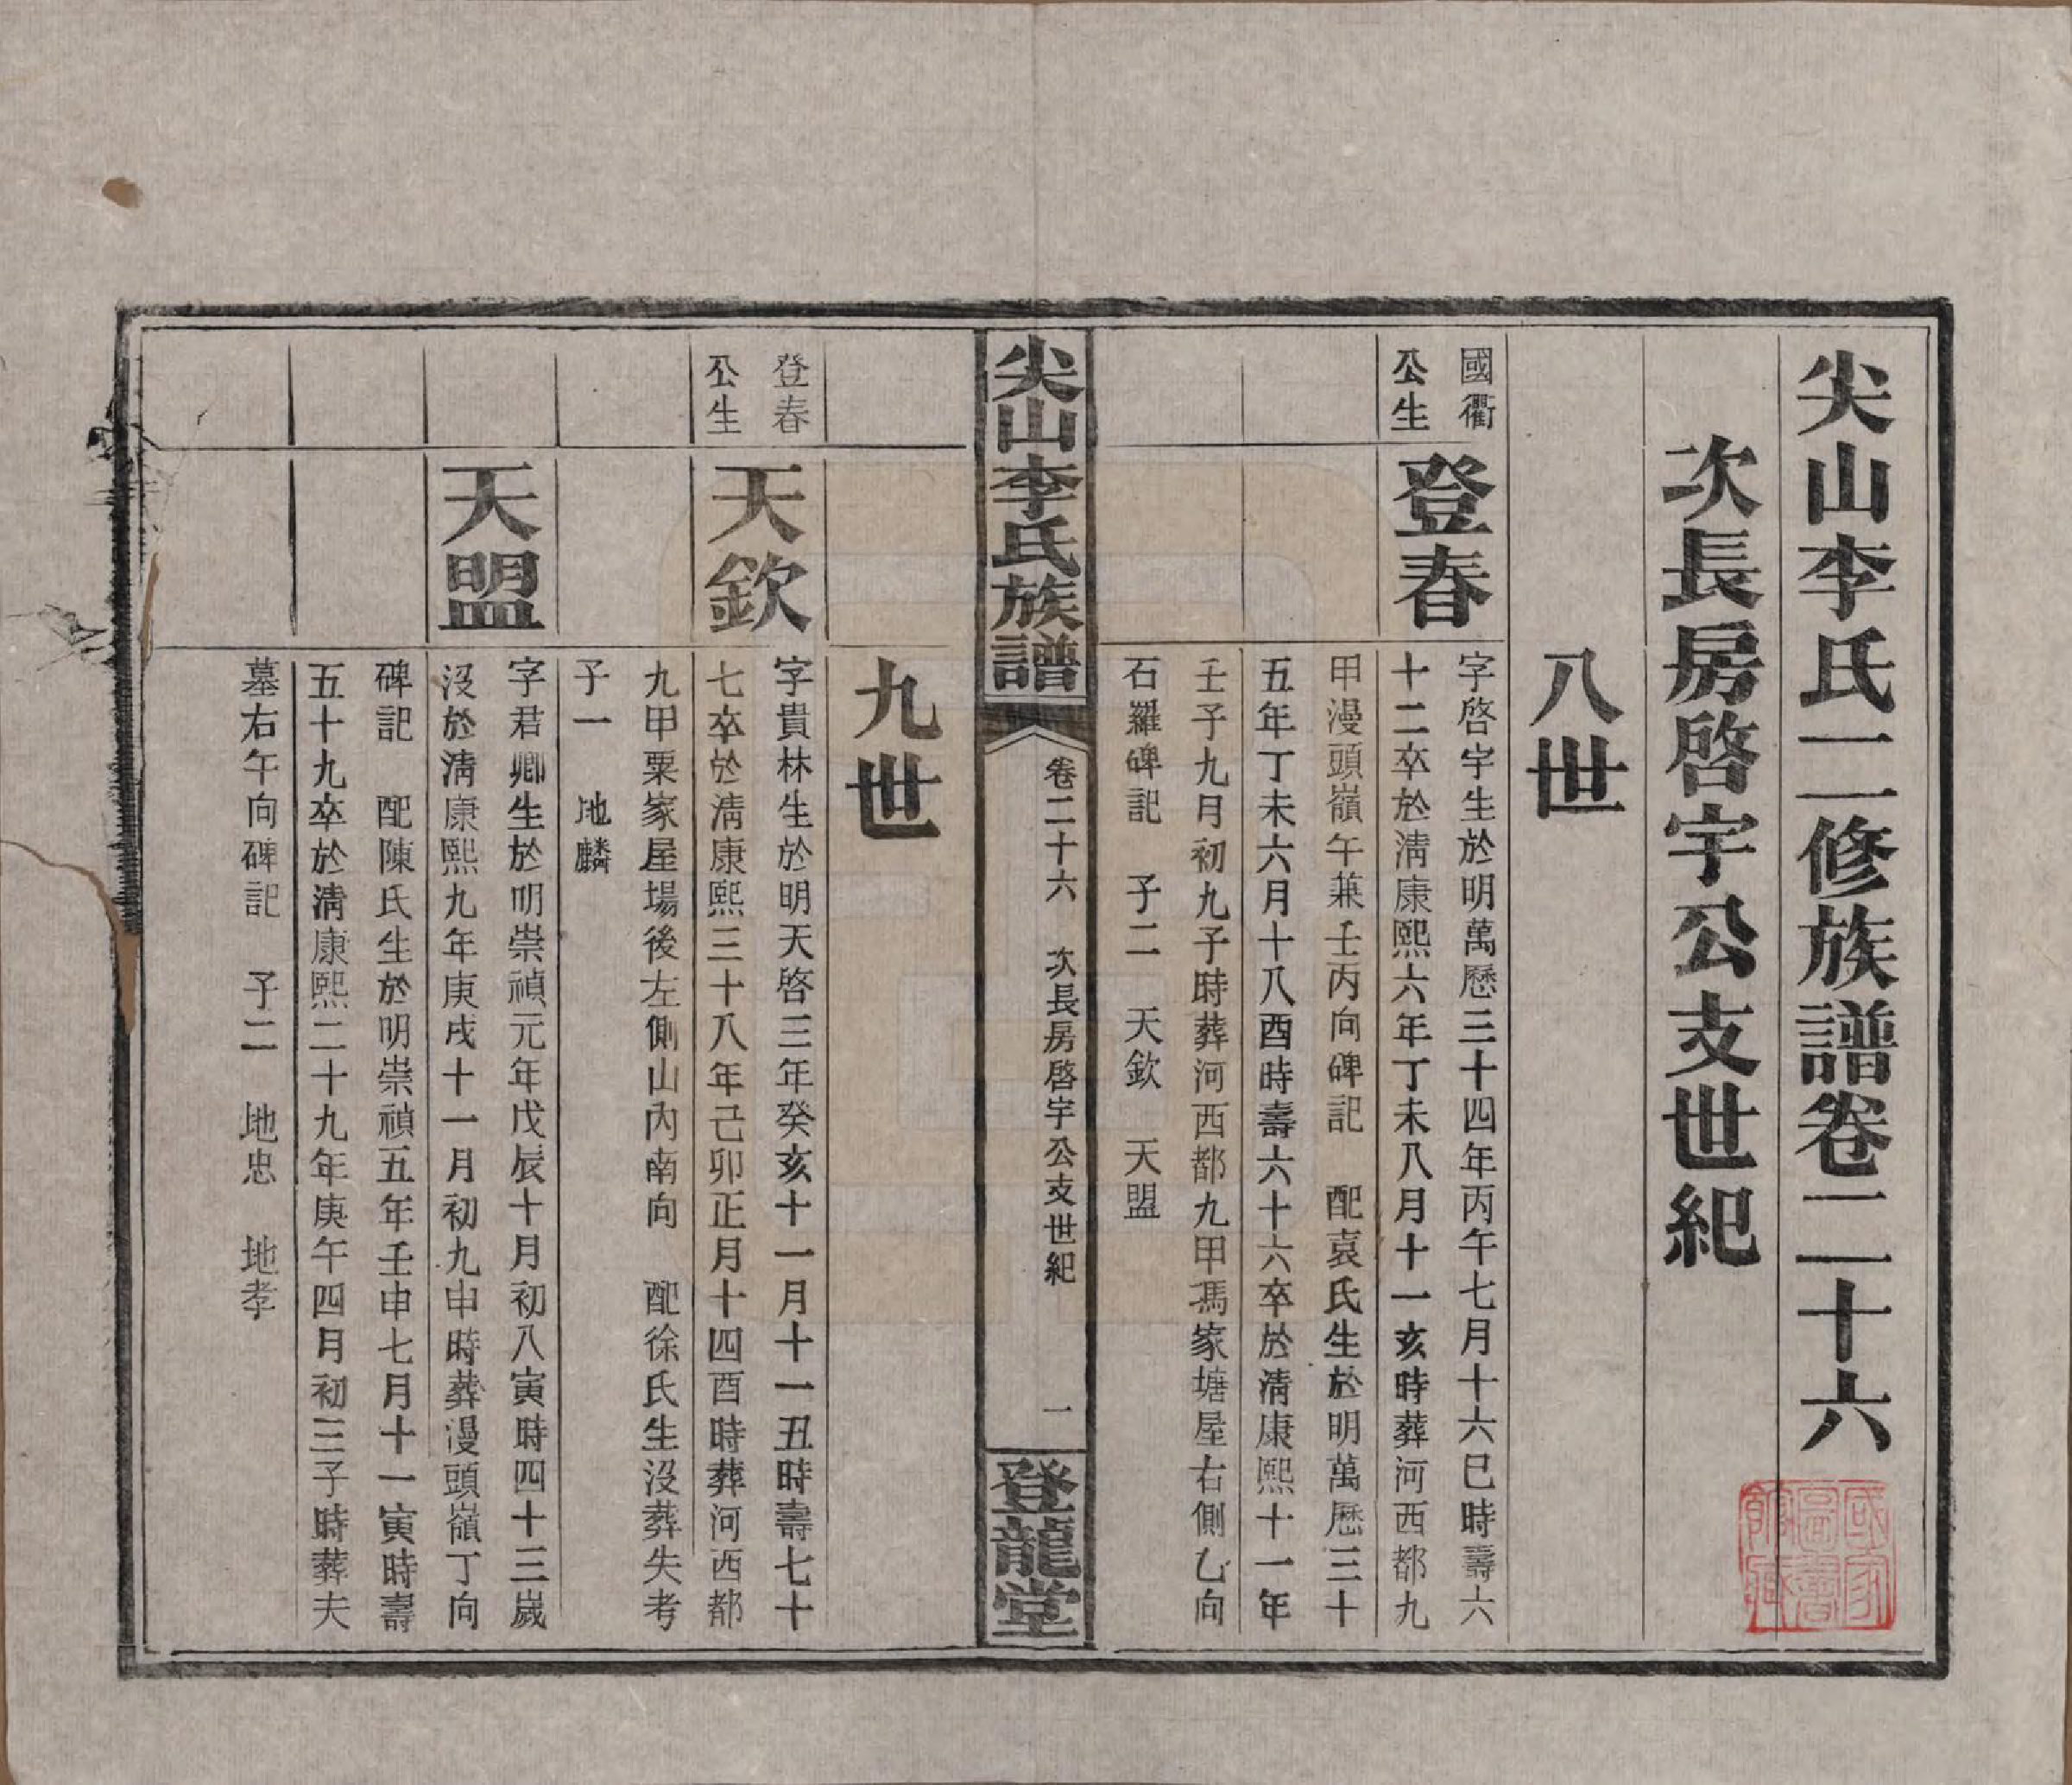 尖山李氏二修族譜卷二十六
次長房啓宇公支世紀
八世
國衢
公生
登春
字啓宇生於明萬歷三十四年丙午七月十六巳時壽六
十二卒於淸康熙六年丁未八月十一亥時葬河西都九
甲漫頭嶺午兼壬丙向碑記　配袁氏生於明萬歷三十
五年丁未六月十八酉時壽六十六卒於淸康熙十一年
壬子九月初九子時葬河西都九甲馮家塘屋右側乙向
石羅碑記　子二　天欽　天盟
尖山李氏族譜
卷二十六　次長房啓宇公支世紀
一
登龍堂
九世
登春
公生
天欽
字貴林生於明天啓三年癸亥十一月十一丑時壽七十
七卒於淸康熙三十八年己卯正月十四酉時葬河西都
九甲粟家屋場後左側山內南向　配徐氏生沒葬失考
子一　地麟
天盟
字君卿生於明崇禎元年戊辰十月初八寅時四十三歲
沒於淸康熙九年庚戌十一月初九申時葬漫頭嶺丁向
碑記　配陳氏生於明崇禎五年壬申七月十一寅時壽
五十九卒於淸康熙二十九年庚午四月初三子時葬夫
墓右午向碑記　子二　地忠　地孝
國家圖書館藏